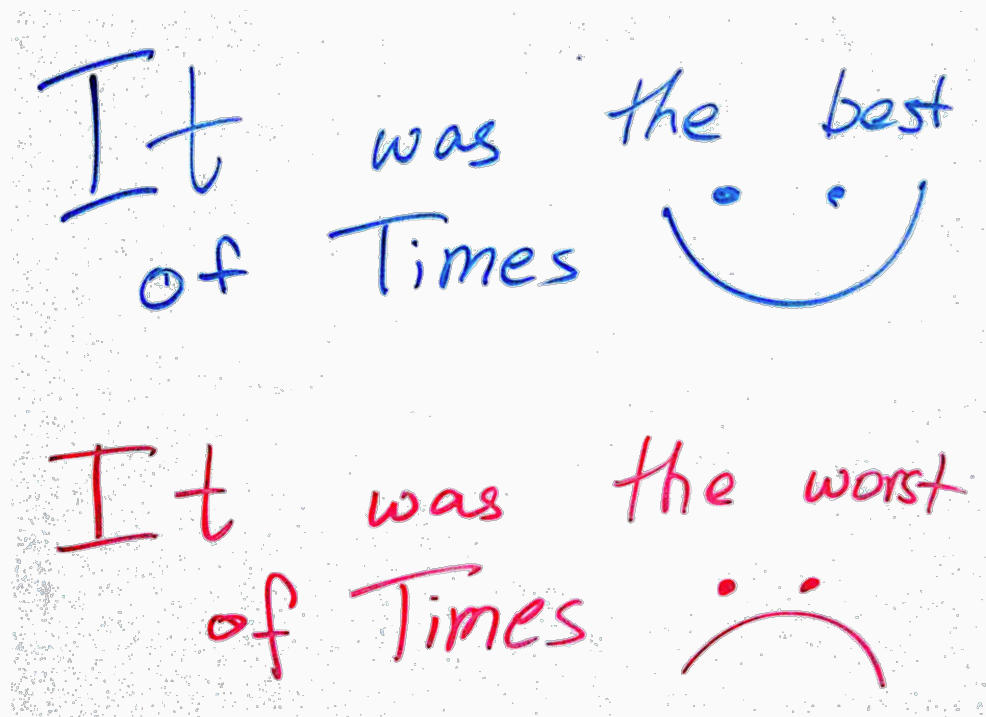 It was the best
of Times
It was the worst
of Times